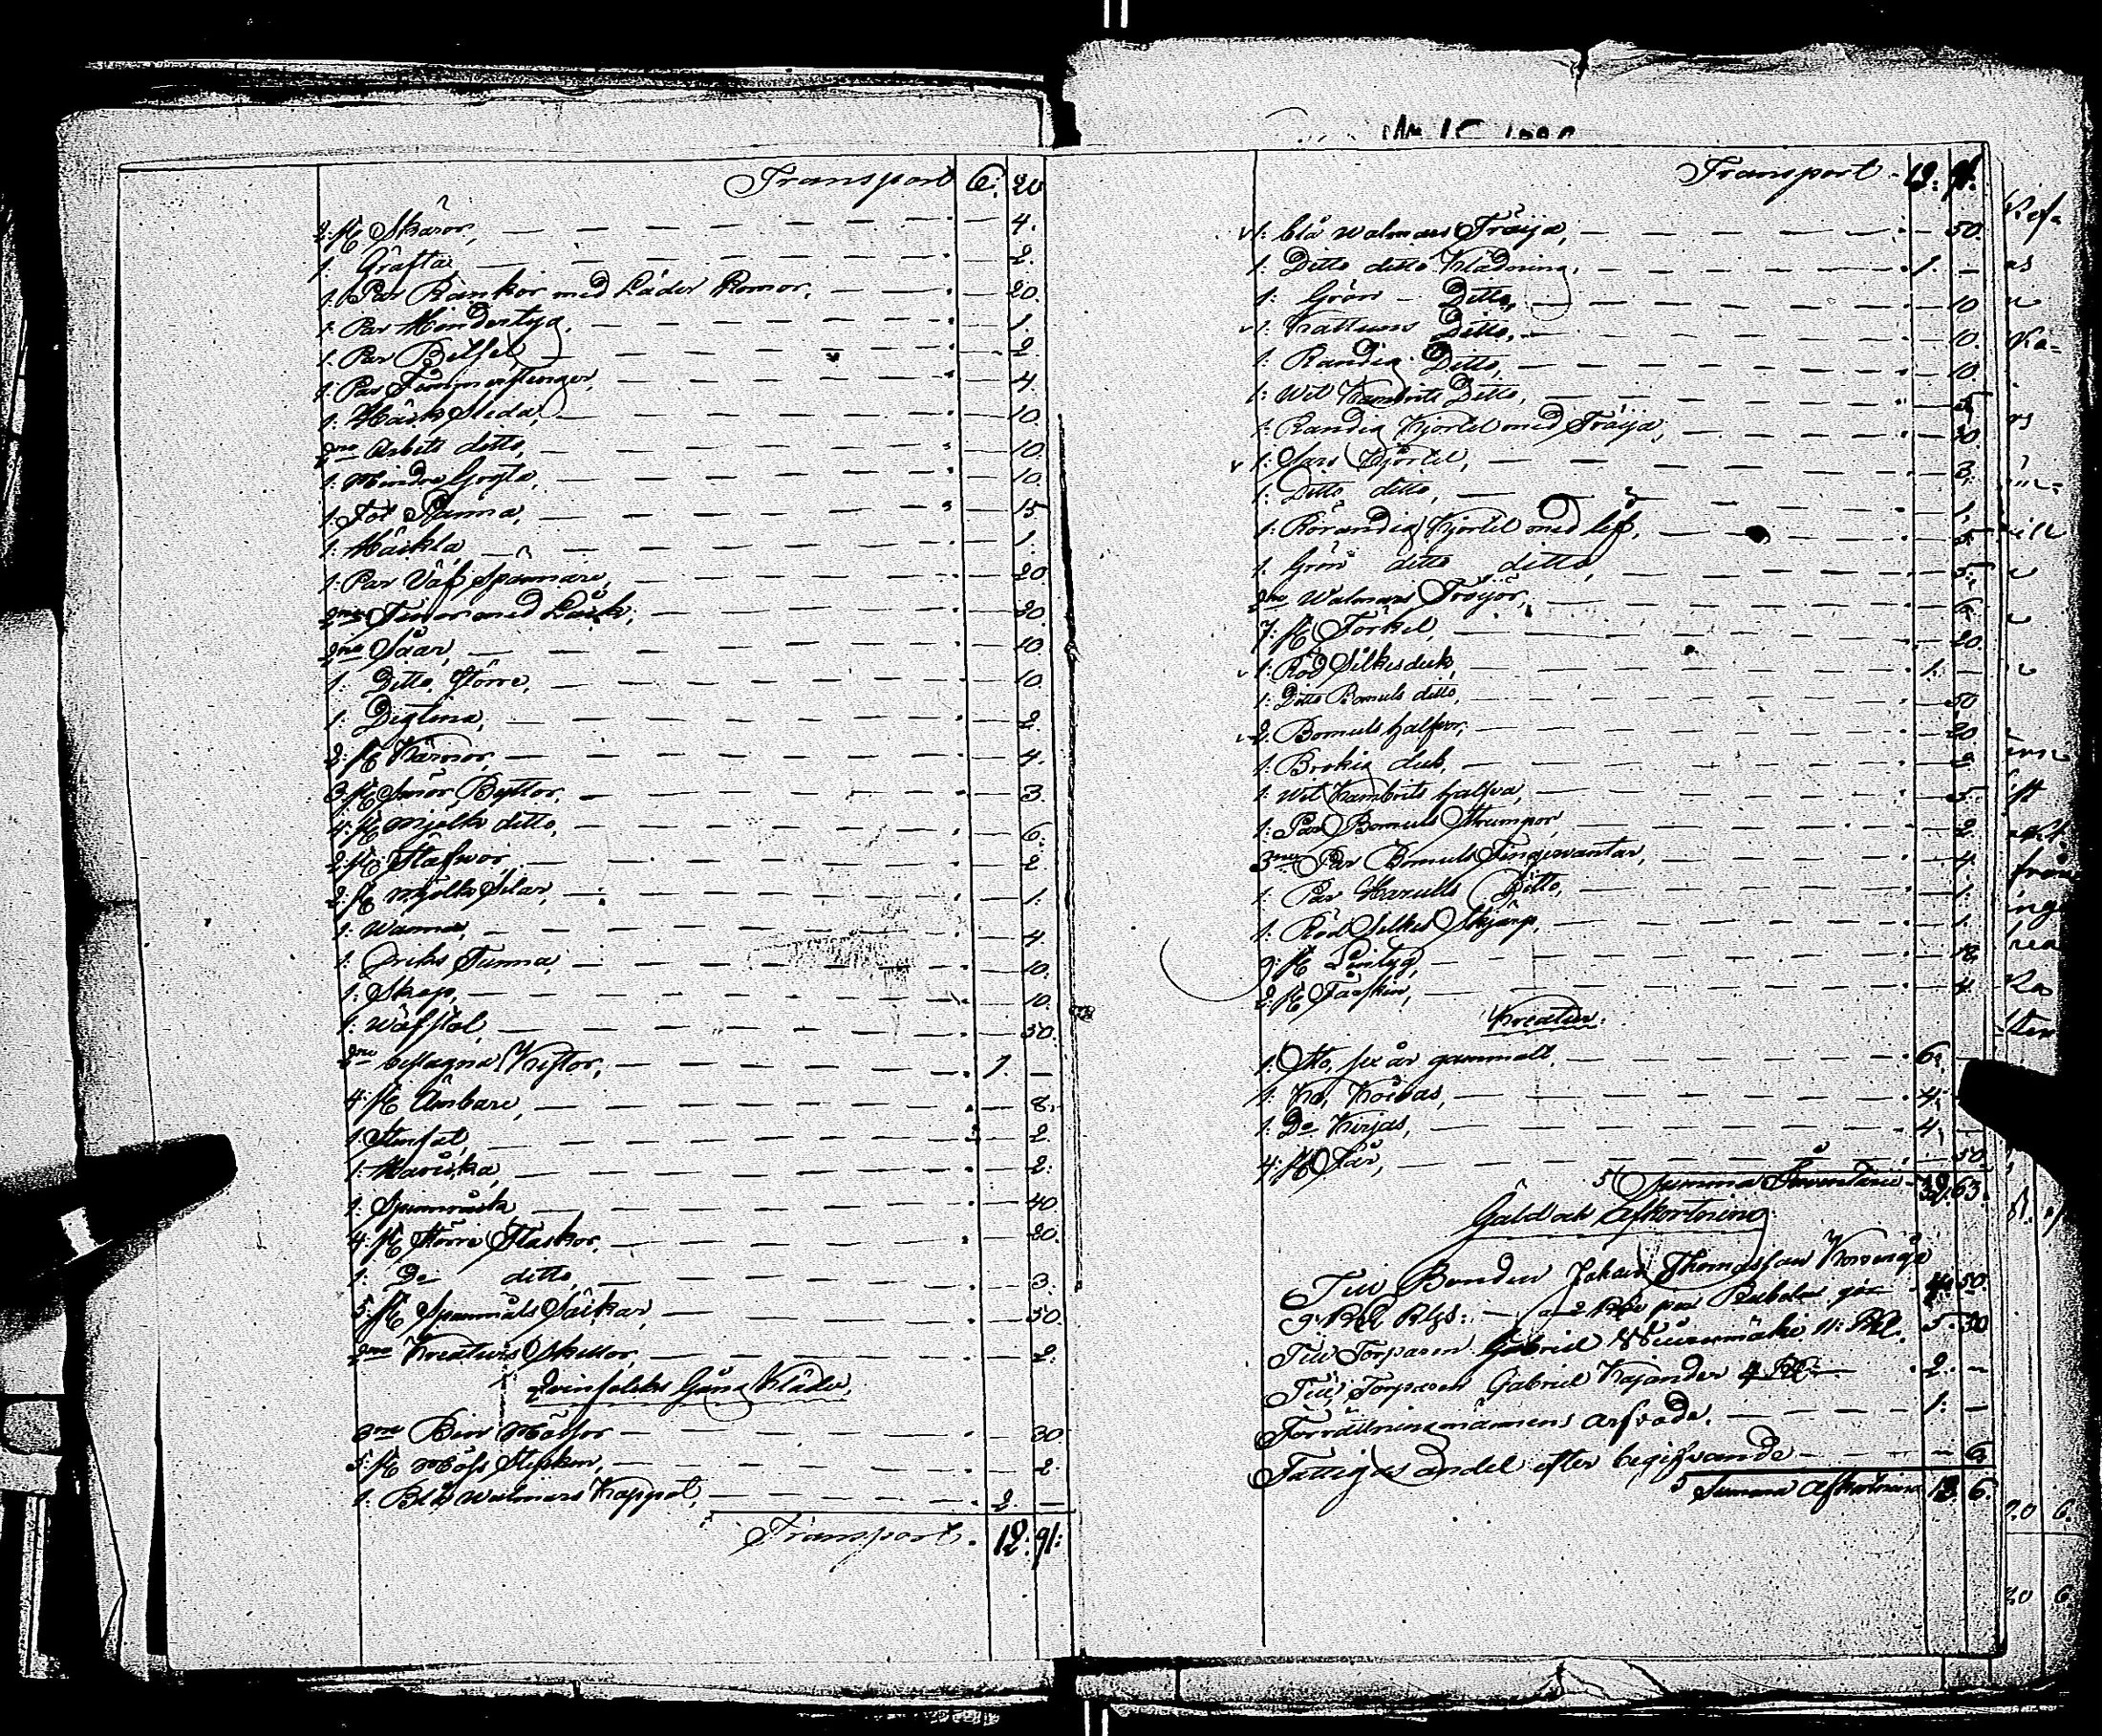 Transport 6: 20
2: st Skäror, 4.
1. Gräfta 2.
1. Par Rankor med Läder Romor, 20.
1. Par Hindertyg, 1.
1. Par Betsel, 2.
1. Par Timmerstinger, 4.
1. Häck Släda, 10.
2ne Arbets ditto, 10.
1. Mindre Gryta, 10.
1. Fot Panna, 15
1. Häckla, 1.
1. Par Väf Spännare, 20
2ne Tinor med Låck, 20.
2ne Såar, 10
1. Ditto större, 10.
1. Degtina, 2
2: st Kärnor, 4.
3: st Smör Byttor, 3.
4: st Mjölk ditto, 6.
2: st Stäfwor, 2.
2: st Mjölk Silar, 1.
1. Wanna, 4.
1. Driks Tunna, 10.
1. Skåp, 10.
1. Wäfstol, 50.
2ne beslagna Kistor, 1. —
4: st Ämbare, 8.
1. Stenfat, 2.
1. 2.
1. Spinnråck 40.
4: st Större Flaskor, 20.
1. Do ditto, 3.
5: st Spannmåls Säckar, 50.
2ne Kreaturs Skellor, 2.
Qvinfolcks Gång Kläder,
3ne Bin Mössor 30.
5: st Möss Stycken, 2.
1. Blå Walmars Kappot, 2. —
Transport. 12: 91:
Transport 12: 91.
1: blå Walmars Tröija, 50.
1: Ditto ditto Klädning, 1. —
1: Grön Ditto, 10
1: Kattuns Ditto, 10.
1: Randig Ditto, 10.
1: Wit Kambrits Ditto, 5
1: Randig Kjortel med Tröija, 30.
1: Sars Kjortel, 3.
1: Ditto ditto, 1.
1: Rörandig Kjortel med lif, 5
1. Grön ditto ditto, 5.
2ne Walmars Tröijor, 6.
7: st Förkel, 20.
1: Röd Silkesduk, 1. —
1: Ditto Bomuls ditto, 50
2. Bomuls halfvor, 20
1: Brokig duk, 2.
1: Wit Kambrits halfva, 5.
1: Par Bomuls Strumpor, 2
3ne Par Bomuls Fingervantar, 4.
1: Par Ditto, 1.
1: Röd Silkes Skjärp, 1.
9: st Lintyg, 18
2: st Fårskin, 4
Kreatur.
1. Sto, sex år gammalt, 6. —
1: Ko, 4. —
1: Do Kirjas, 4. —
4: st Får, 50
Summa Inventarii 63.
Gäld och Afkortning
Till Bonden Johan Thomasson
9: Rbl Rbgs: 4. 50.
Till Torparen Gabriel 11: Rbl. 5. 30
Till Torparen Gabriel Kajander 4 2. —
Förrättningsmännens arfvode. 1: —
Fattigas andel efter begifvande 6
Summa Afkortning 6.